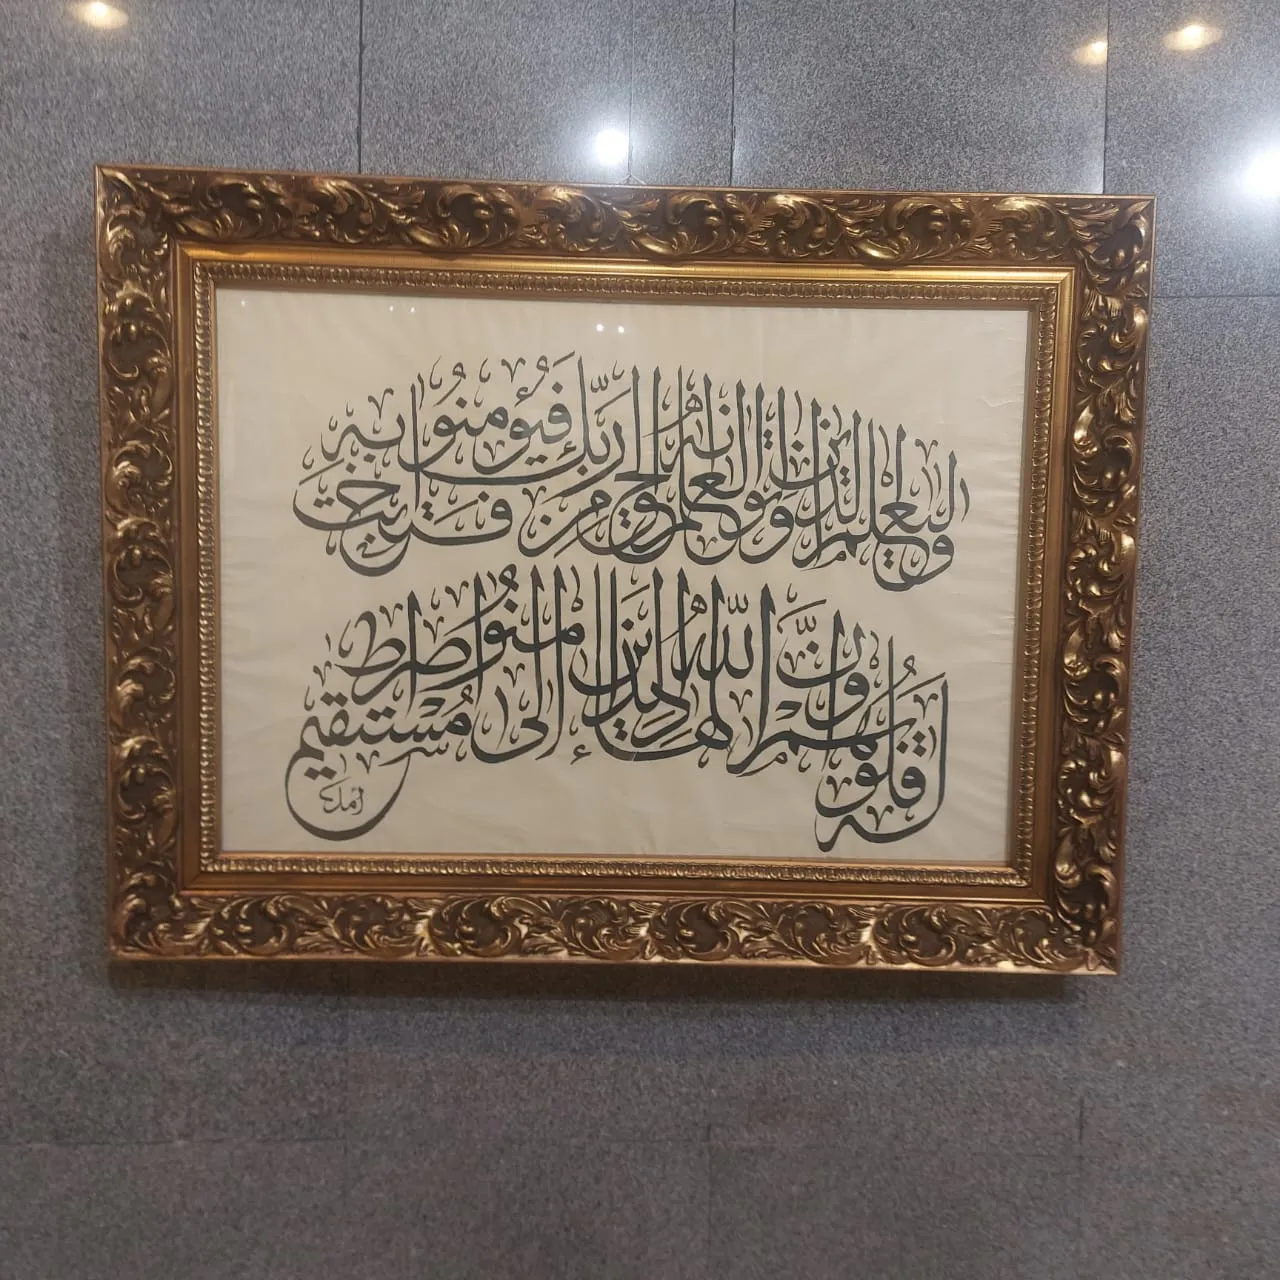 وليعلم الذين اوتوا العلم انه الحق من ربك فيؤمنوا به فتخبت
له قلوبهم وان الله لهاد الذين امنوا إلى صراط مستقيم